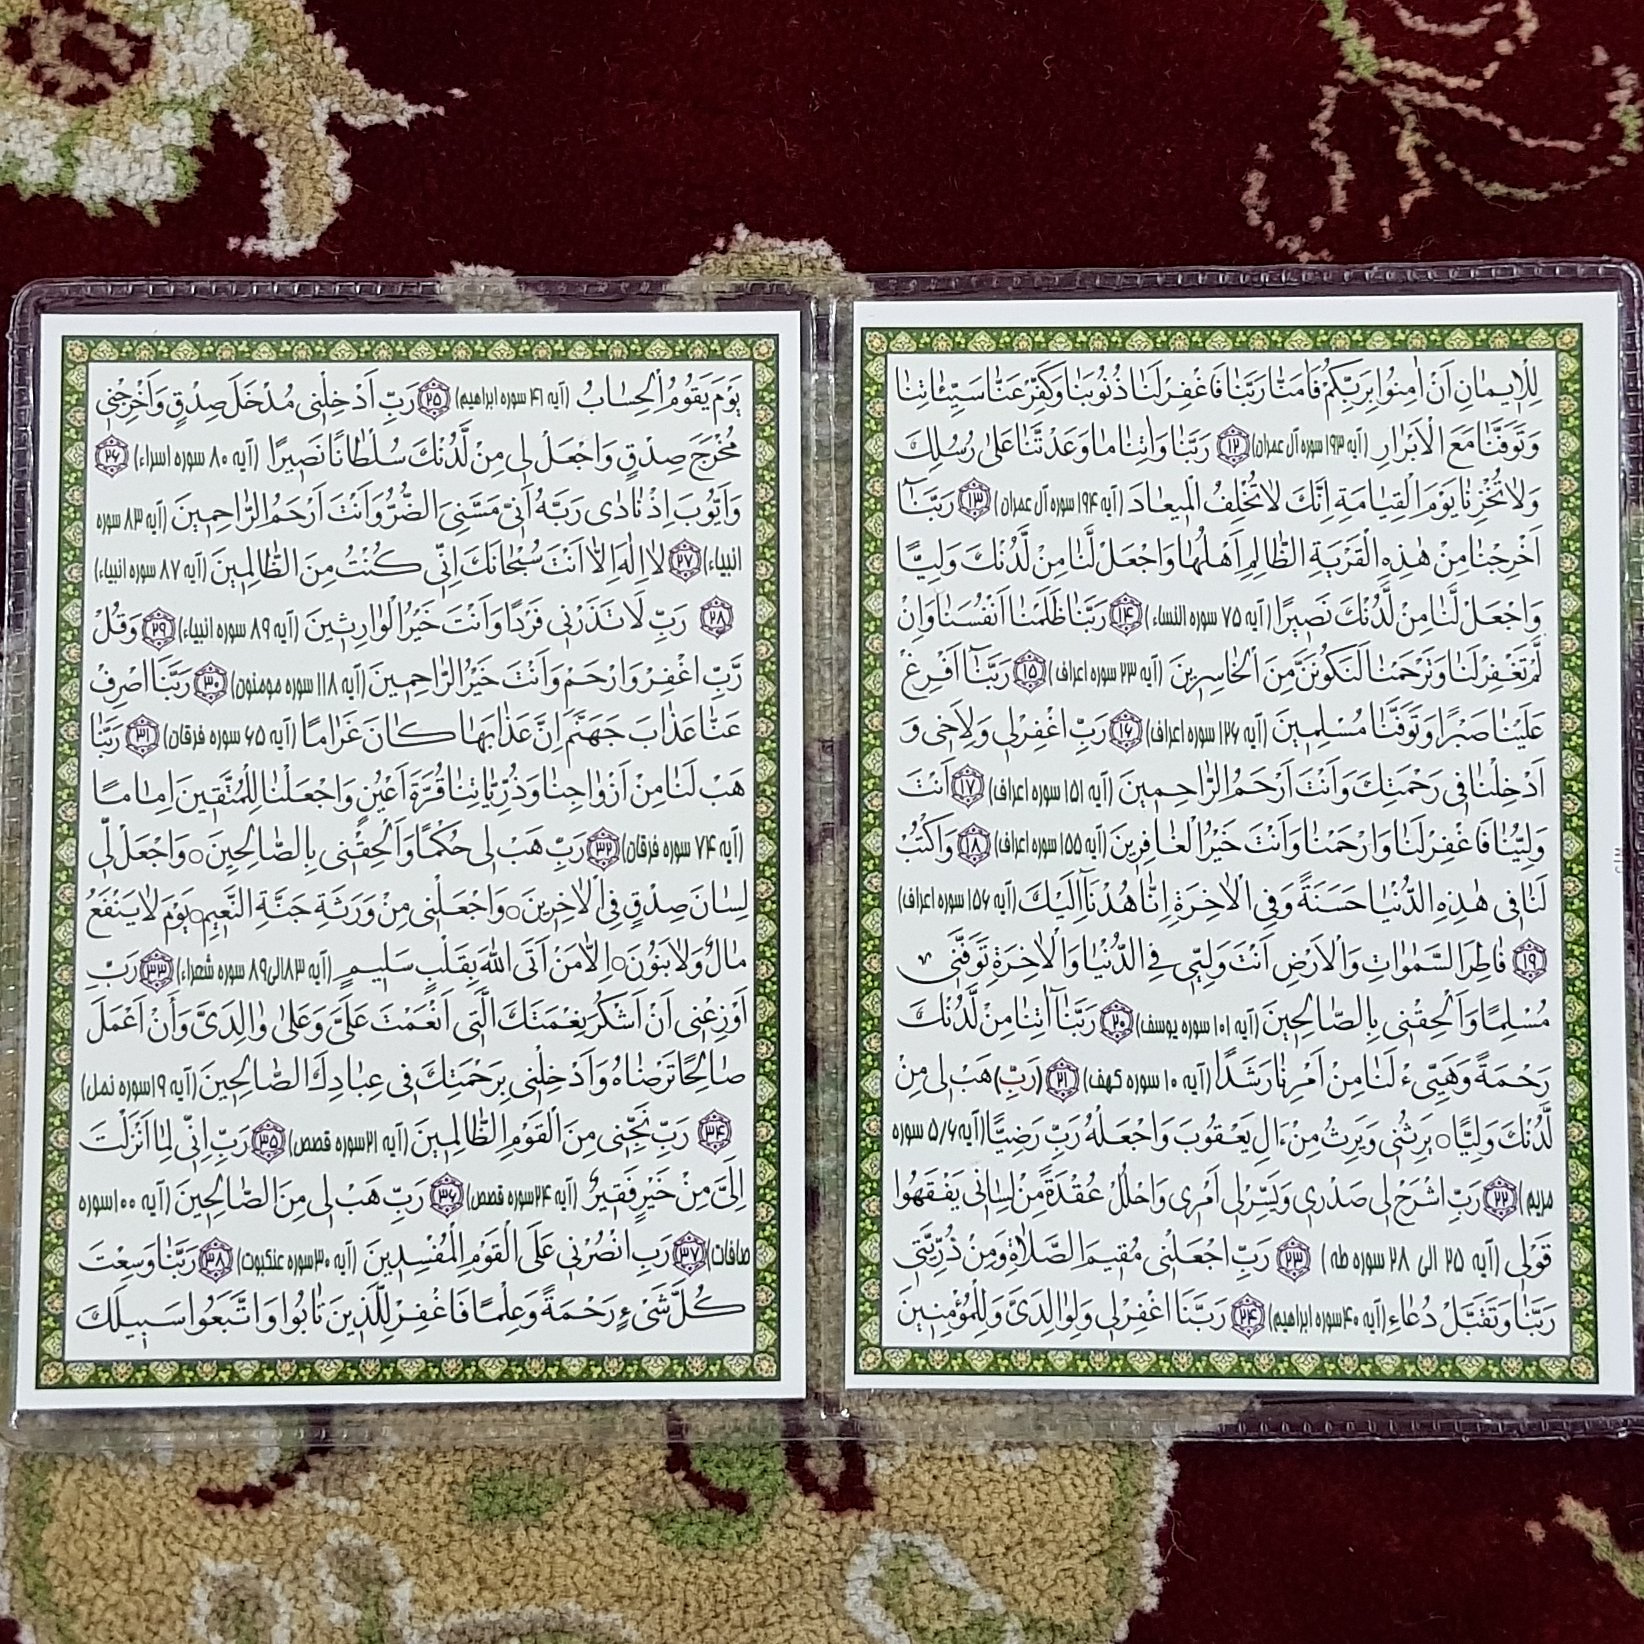 لِلْإِيمَانِ أَنْ آمِنُوا بِرَبِّكُمْ فَآمَنَّا رَبَّنَا فَاغْفِرْ لَنَا ذُنُوبَنَا وَكَفِّرْ عَنَّا سَيِّئَاتِنَا
وَتَوَفَّنَا مَعَ الْأَبْرَارِ (آیه ۱۹۳ سوره آل عمران) ۱۲ رَبَّنَا وَآتِنَا مَا وَعَدْتَنَا عَلَى رُسُلِكَ
وَلَا تُخْزِنَا يَوْمَ الْقِيَامَةِ إِنَّكَ لَا تُخْلِفُ الْمِيعَادَ (آیه ۱۹۴ سوره آل عمران) ۱۳ رَبَّنَا
أَخْرِجْنَا مِنْ هٰذِهِ الْقَرْيَةِ الظَّالِمِ أَهْلُهَا وَاجْعَلْ لَنَا مِنْ لَدُنْكَ وَلِيًّا
وَاجْعَلْ لَنَا مِنْ لَدُنْكَ نَصِيرًا (آیه ۷۵ سوره النساء) ۱۴ رَبَّنَا ظَلَمْنَا أَنْفُسَنَا وَإِنْ
لَمْ تَغْفِرْ لَنَا وَتَرْحَمْنَا لَنَكُونَنَّ مِنَ الْخَاسِرِينَ (آیه ۲۳ سوره اعراف) ۱۵ رَبَّنَا أَفْرِغْ
عَلَيْنَا صَبْرًا وَتَوَفَّنَا مُسْلِمِينَ (آیه ۱۲۶ سوره اعراف) ۱۶ رَبِّ اغْفِرْ لِي وَلِأَخِي وَ
أَدْخِلْنَا فِي رَحْمَتِكَ وَأَنْتَ أَرْحَمُ الرَّاحِمِينَ (آیه ۱۵۱ سوره اعراف) ۱۷ أَنْتَ
وَلِيُّنَا فَاغْفِرْ لَنَا وَارْحَمْنَا وَأَنْتَ خَيْرُ الْغَافِرِينَ (آیه ۱۵۵ سوره اعراف) ۱۸ وَاكْتُبْ
لَنَا فِي هٰذِهِ الدُّنْيَا حَسَنَةً وَفِي الْآخِرَةِ إِنَّا هُدْنَا إِلَيْكَ (آیه ۱۵۶ سوره اعراف)
۱۹ فَاطِرَ السَّمٰوَاتِ وَالْأَرْضِ أَنْتَ وَلِيِّي فِي الدُّنْيَا وَالْآخِرَةِ تَوَفَّنِي
مُسْلِمًا وَأَلْحِقْنِي بِالصَّالِحِينَ (آیه ۱۰۱ سوره یوسف) ۲۰ رَبَّنَا آتِنَا مِنْ لَدُنْكَ
رَحْمَةً وَهَيِّئْ لَنَا مِنْ أَمْرِنَا رَشَدًا (آیه ۱۰ سوره کهف) ۲۱ (رَبِّ) هَبْ لِي مِنْ
لَدُنْكَ وَلِيًّا ○ يَرِثُنِي وَيَرِثُ مِنْ ءَالِ يَعْقُوبَ وَاجْعَلْهُ رَبِّ رَضِيًّا (آیه ۵/۶ سوره
مریم) ۲۲ رَبِّ اشْرَحْ لِي صَدْرِي وَيَسِّرْ لِي أَمْرِي وَاحْلُلْ عُقْدَةً مِنْ لِسَانِي يَفْقَهُوا
قَوْلِي (آیه ۲۵ الی ۲۸ سوره طه) ۲۳ رَبِّ اجْعَلْنِي مُقِيمَ الصَّلَاةِ وَمِنْ ذُرِّيَّتِي
رَبَّنَا وَتَقَبَّلْ دُعَاءِ (آیه ۴۰ سوره ابراهیم) ۲۴ رَبَّنَا اغْفِرْ لِي وَلِوَالِدَيَّ وَلِلْمُؤْمِنِينَ
يَوْمَ يَقُومُ الْحِسَابُ (آیه ۴۱ سوره ابراهیم) ۲۵ رَبِّ أَدْخِلْنِي مُدْخَلَ صِدْقٍ وَأَخْرِجْنِي
مُخْرَجَ صِدْقٍ وَاجْعَلْ لِي مِنْ لَدُنْكَ سُلْطَانًا نَصِيرًا (آیه ۸۰ سوره اسراء) ۲۶
وَأَيُّوبَ إِذْ نَادَى رَبَّهُ أَنِّي مَسَّنِيَ الضُّرُّ وَأَنْتَ أَرْحَمُ الرَّاحِمِينَ (آیه ۸۳ سوره
انبیاء) ۲۷ لَا إِلٰهَ إِلَّا أَنْتَ سُبْحَانَكَ إِنِّي كُنْتُ مِنَ الظَّالِمِينَ (آیه ۸۷ سوره انبیاء)
۲۸ رَبِّ لَا تَذَرْنِي فَرْدًا وَأَنْتَ خَيْرُ الْوَارِثِينَ (آیه ۸۹ سوره انبیاء) ۲۹ وَقُلْ
رَبِّ اغْفِرْ وَارْحَمْ وَأَنْتَ خَيْرُ الرَّاحِمِينَ (آیه ۱۱۸ سوره مومنون) ۳۰ رَبَّنَا اصْرِفْ
عَنَّا عَذَابَ جَهَنَّمَ إِنَّ عَذَابَهَا كَانَ غَرَامًا (آیه ۶۵ سوره فرقان) ۳۱ رَبَّنَا
هَبْ لَنَا مِنْ أَزْوَاجِنَا وَذُرِّيَّاتِنَا قُرَّةَ أَعْيُنٍ وَاجْعَلْنَا لِلْمُتَّقِينَ إِمَامًا
(آیه ۷۴ سوره فرقان) ۳۲ رَبِّ هَبْ لِي حُكْمًا وَأَلْحِقْنِي بِالصَّالِحِينَ ○ وَاجْعَلْ لِي
لِسَانَ صِدْقٍ فِي الْآخِرِينَ ○ وَاجْعَلْنِي مِنْ وَرَثَةِ جَنَّةِ النَّعِيمِ ○ يَوْمَ لَا يَنْفَعُ
مَالٌ وَلَا بَنُونَ ○ إِلَّا مَنْ أَتَى اللَّهَ بِقَلْبٍ سَلِيمٍ (آیه ۸۳الی۸۹ سوره شعراء) ۳۳ رَبِّ
أَوْزِعْنِي أَنْ أَشْكُرَ نِعْمَتَكَ الَّتِي أَنْعَمْتَ عَلَيَّ وَعَلَى وَالِدَيَّ وَأَنْ أَعْمَلَ
صَالِحًا تَرْضَاهُ وَأَدْخِلْنِي بِرَحْمَتِكَ فِي عِبَادِكَ الصَّالِحِينَ (آیه ۱۹سوره نمل)
۳۴ رَبِّ نَجِّنِي مِنَ الْقَوْمِ الظَّالِمِينَ (آیه ۲۱سوره قصص) ۳۵ رَبِّ إِنِّي لِمَا أَنْزَلْتَ
إِلَيَّ مِنْ خَيْرٍ فَقِيرٌ (آیه ۲۴سوره قصص) ۳۶ رَبِّ هَبْ لِي مِنَ الصَّالِحِينَ (آیه ۱۰۰سوره
صافات) ۳۷ رَبِّ انْصُرْنِي عَلَى الْقَوْمِ الْمُفْسِدِينَ (آیه ۳۰سوره عنکبوت) ۳۸ رَبَّنَا وَسِعْتَ
كُلَّ شَيْءٍ رَحْمَةً وَعِلْمًا فَاغْفِرْ لِلَّذِينَ تَابُوا وَاتَّبَعُوا سَبِيلَكَ